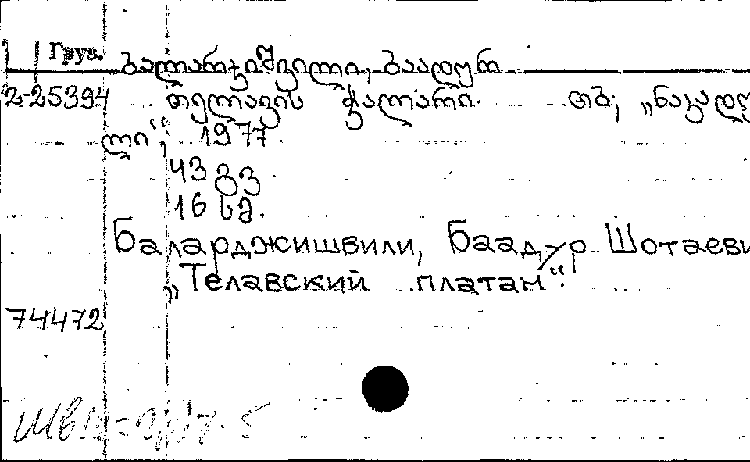 Груз.
ბალარჯიშვილი, ბაადურ
2-25394 თელავის ჭადარი. თბ; „ნაკადუ
ლი“, 1977.
43 გვ.
16 სმ.
Баларджишвили, Баадур Шотаеви
„Телавский платан“.
74472